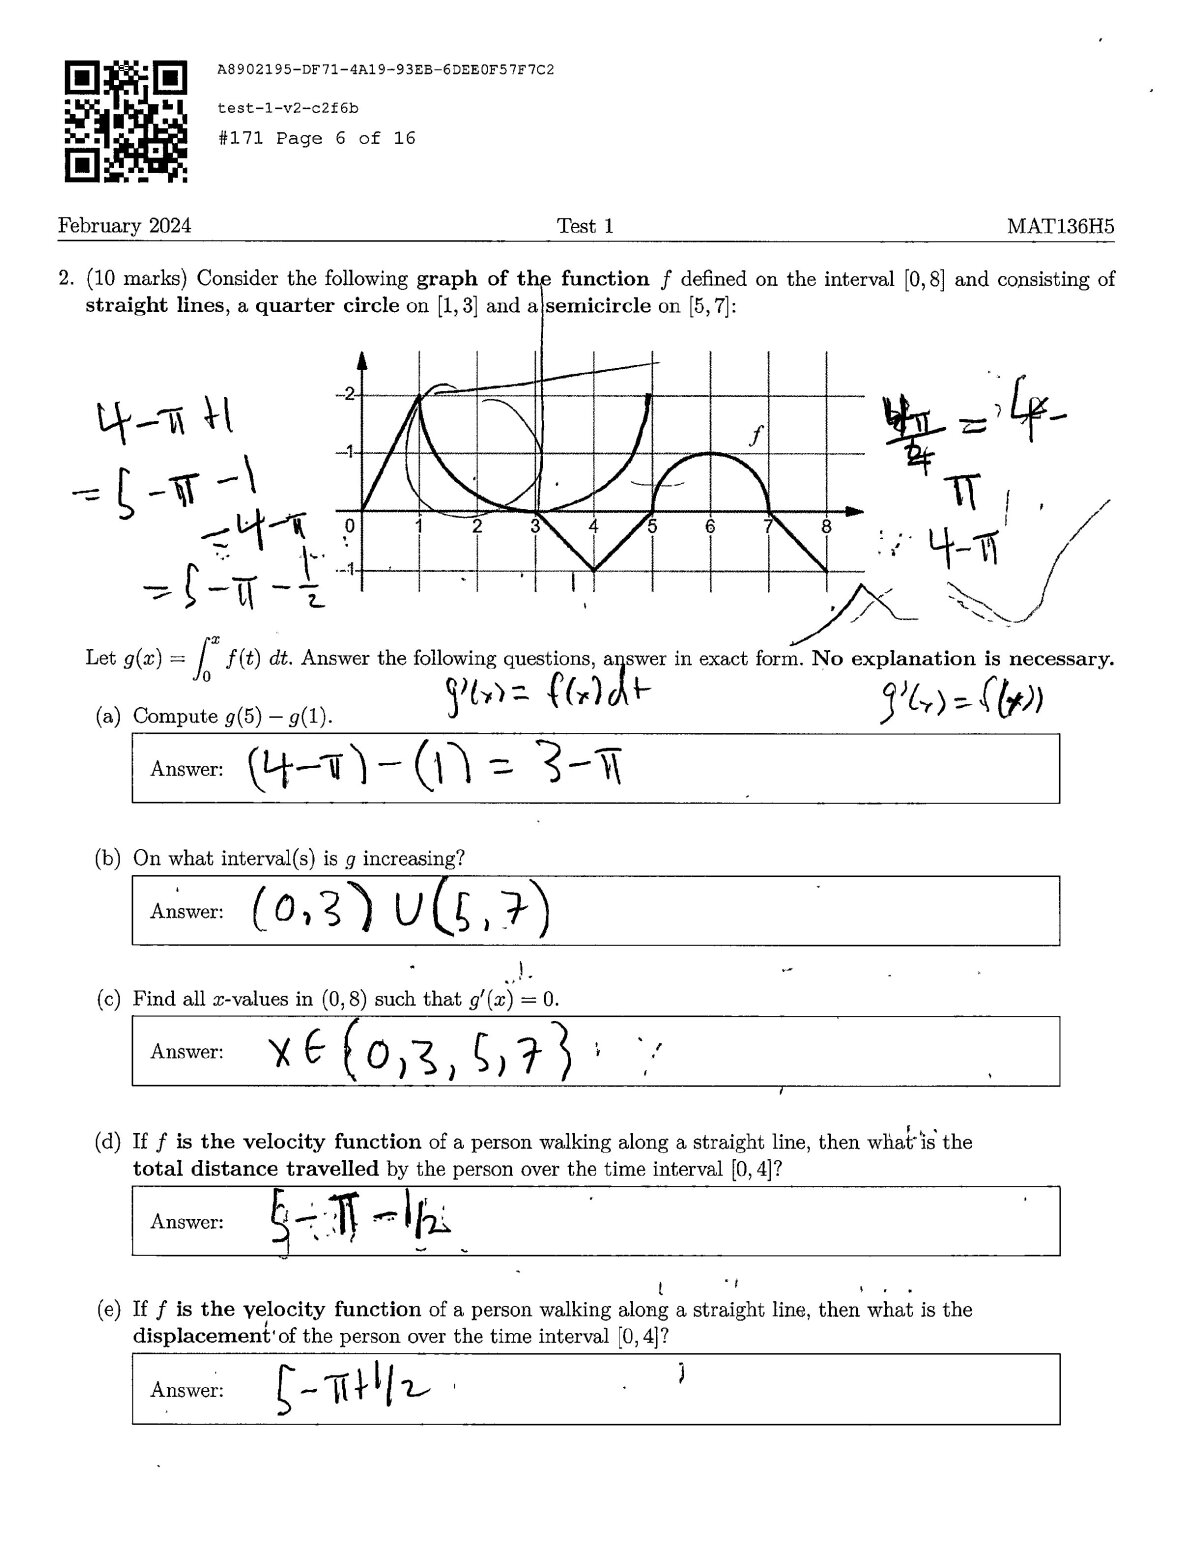 A8902195-DF71-4A19-93EB-6DEE0F57F7C2
test-1-v2-c2f6b
#171 Page 6 of 16
February 2024 Test 1 MAT136H5
2. (10 marks) Consider the following graph of the function f defined on the interval [0, 8] and consisting of
straight lines, a quarter circle on [1, 3] and a semicircle on [5, 7]:
4-π+1
= 5-π-1
= 4-π
= 5-π-1/2
2
1
-1
0 1 2 3 4 5 6 7 8
f
π
4-π
Let g(x) = ∫₀ˣ f(t) dt. Answer the following questions, answer in exact form. No explanation is necessary.
g'(x) = f(x)dt
g'(x) = f(x)
(a) Compute g(5) − g(1).
Answer: (4-π)-(1) = 3-π
(b) On what interval(s) is g increasing?
Answer: (0,3) ∪ (5,7)
(c) Find all x-values in (0, 8) such that g′(x) = 0.
Answer: x ∈ {0,3,5,7}
(d) If f is the velocity function of a person walking along a straight line, then what is the
total distance travelled by the person over the time interval [0, 4]?
Answer: 5-π-1/2
(e) If f is the velocity function of a person walking along a straight line, then what is the
displacement of the person over the time interval [0, 4]?
Answer: 5-π+1/2